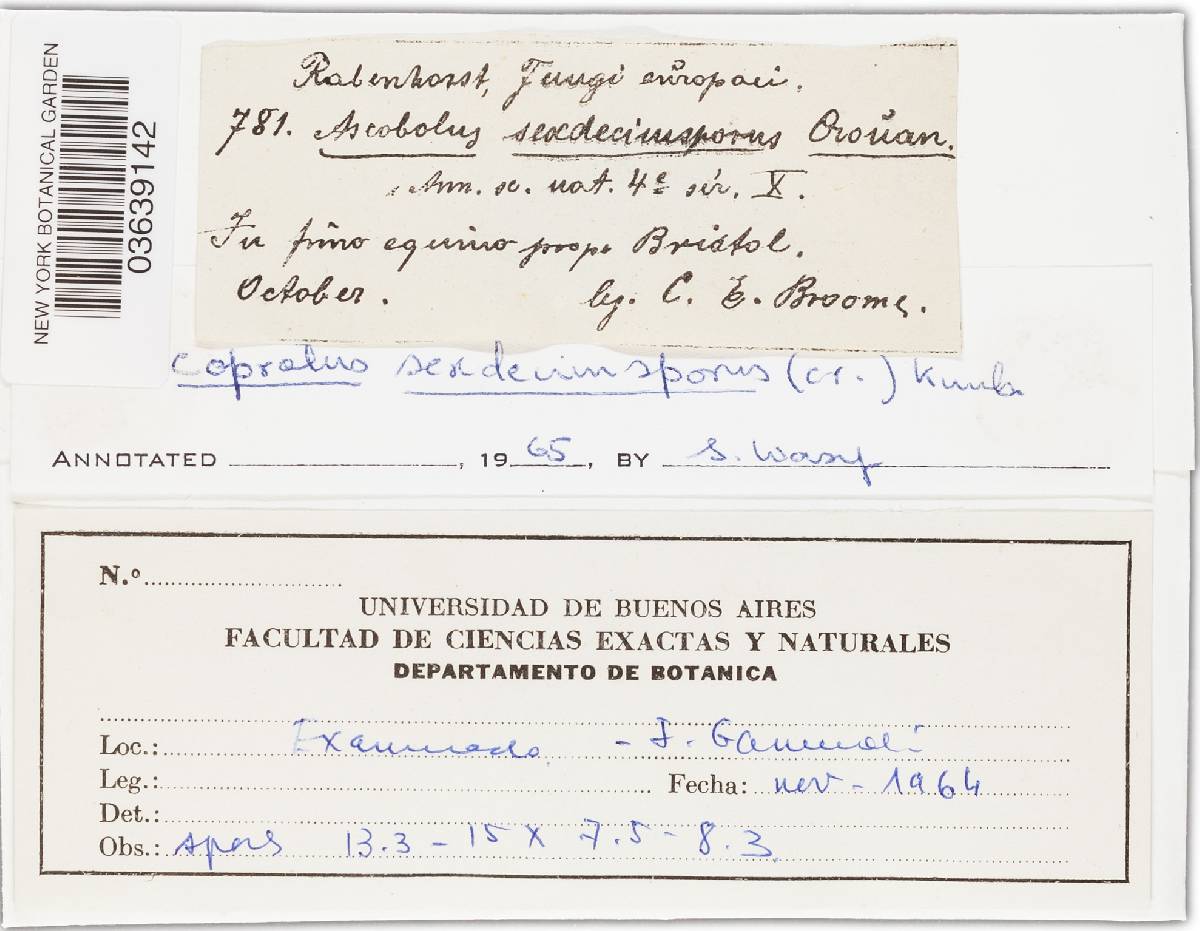 NEW YORK BOTANICAL GARDEN
03639142
Rabenhorst, Fungi europaei.
781. Ascobolus sexdecimsporus Crouan.
Ann. sc. nat. 4e sér. X.
In fimo equino prope Bristol.
October. leg. C. E. Broome.
sexdecimsporus (cr.)
ANNOTATED , 1965, BY S.
N.º
UNIVERSIDAD DE BUENOS AIRES
FACULTAD DE CIENCIAS EXACTAS Y NATURALES
DEPARTAMENTO DE BOTANICA
Loc.: Examinado - I. Gamundi
Leg.: Fecha: nov - 1964
Det.:
Obs.: spors 13.3 - 15 x 7.5 - 8.3